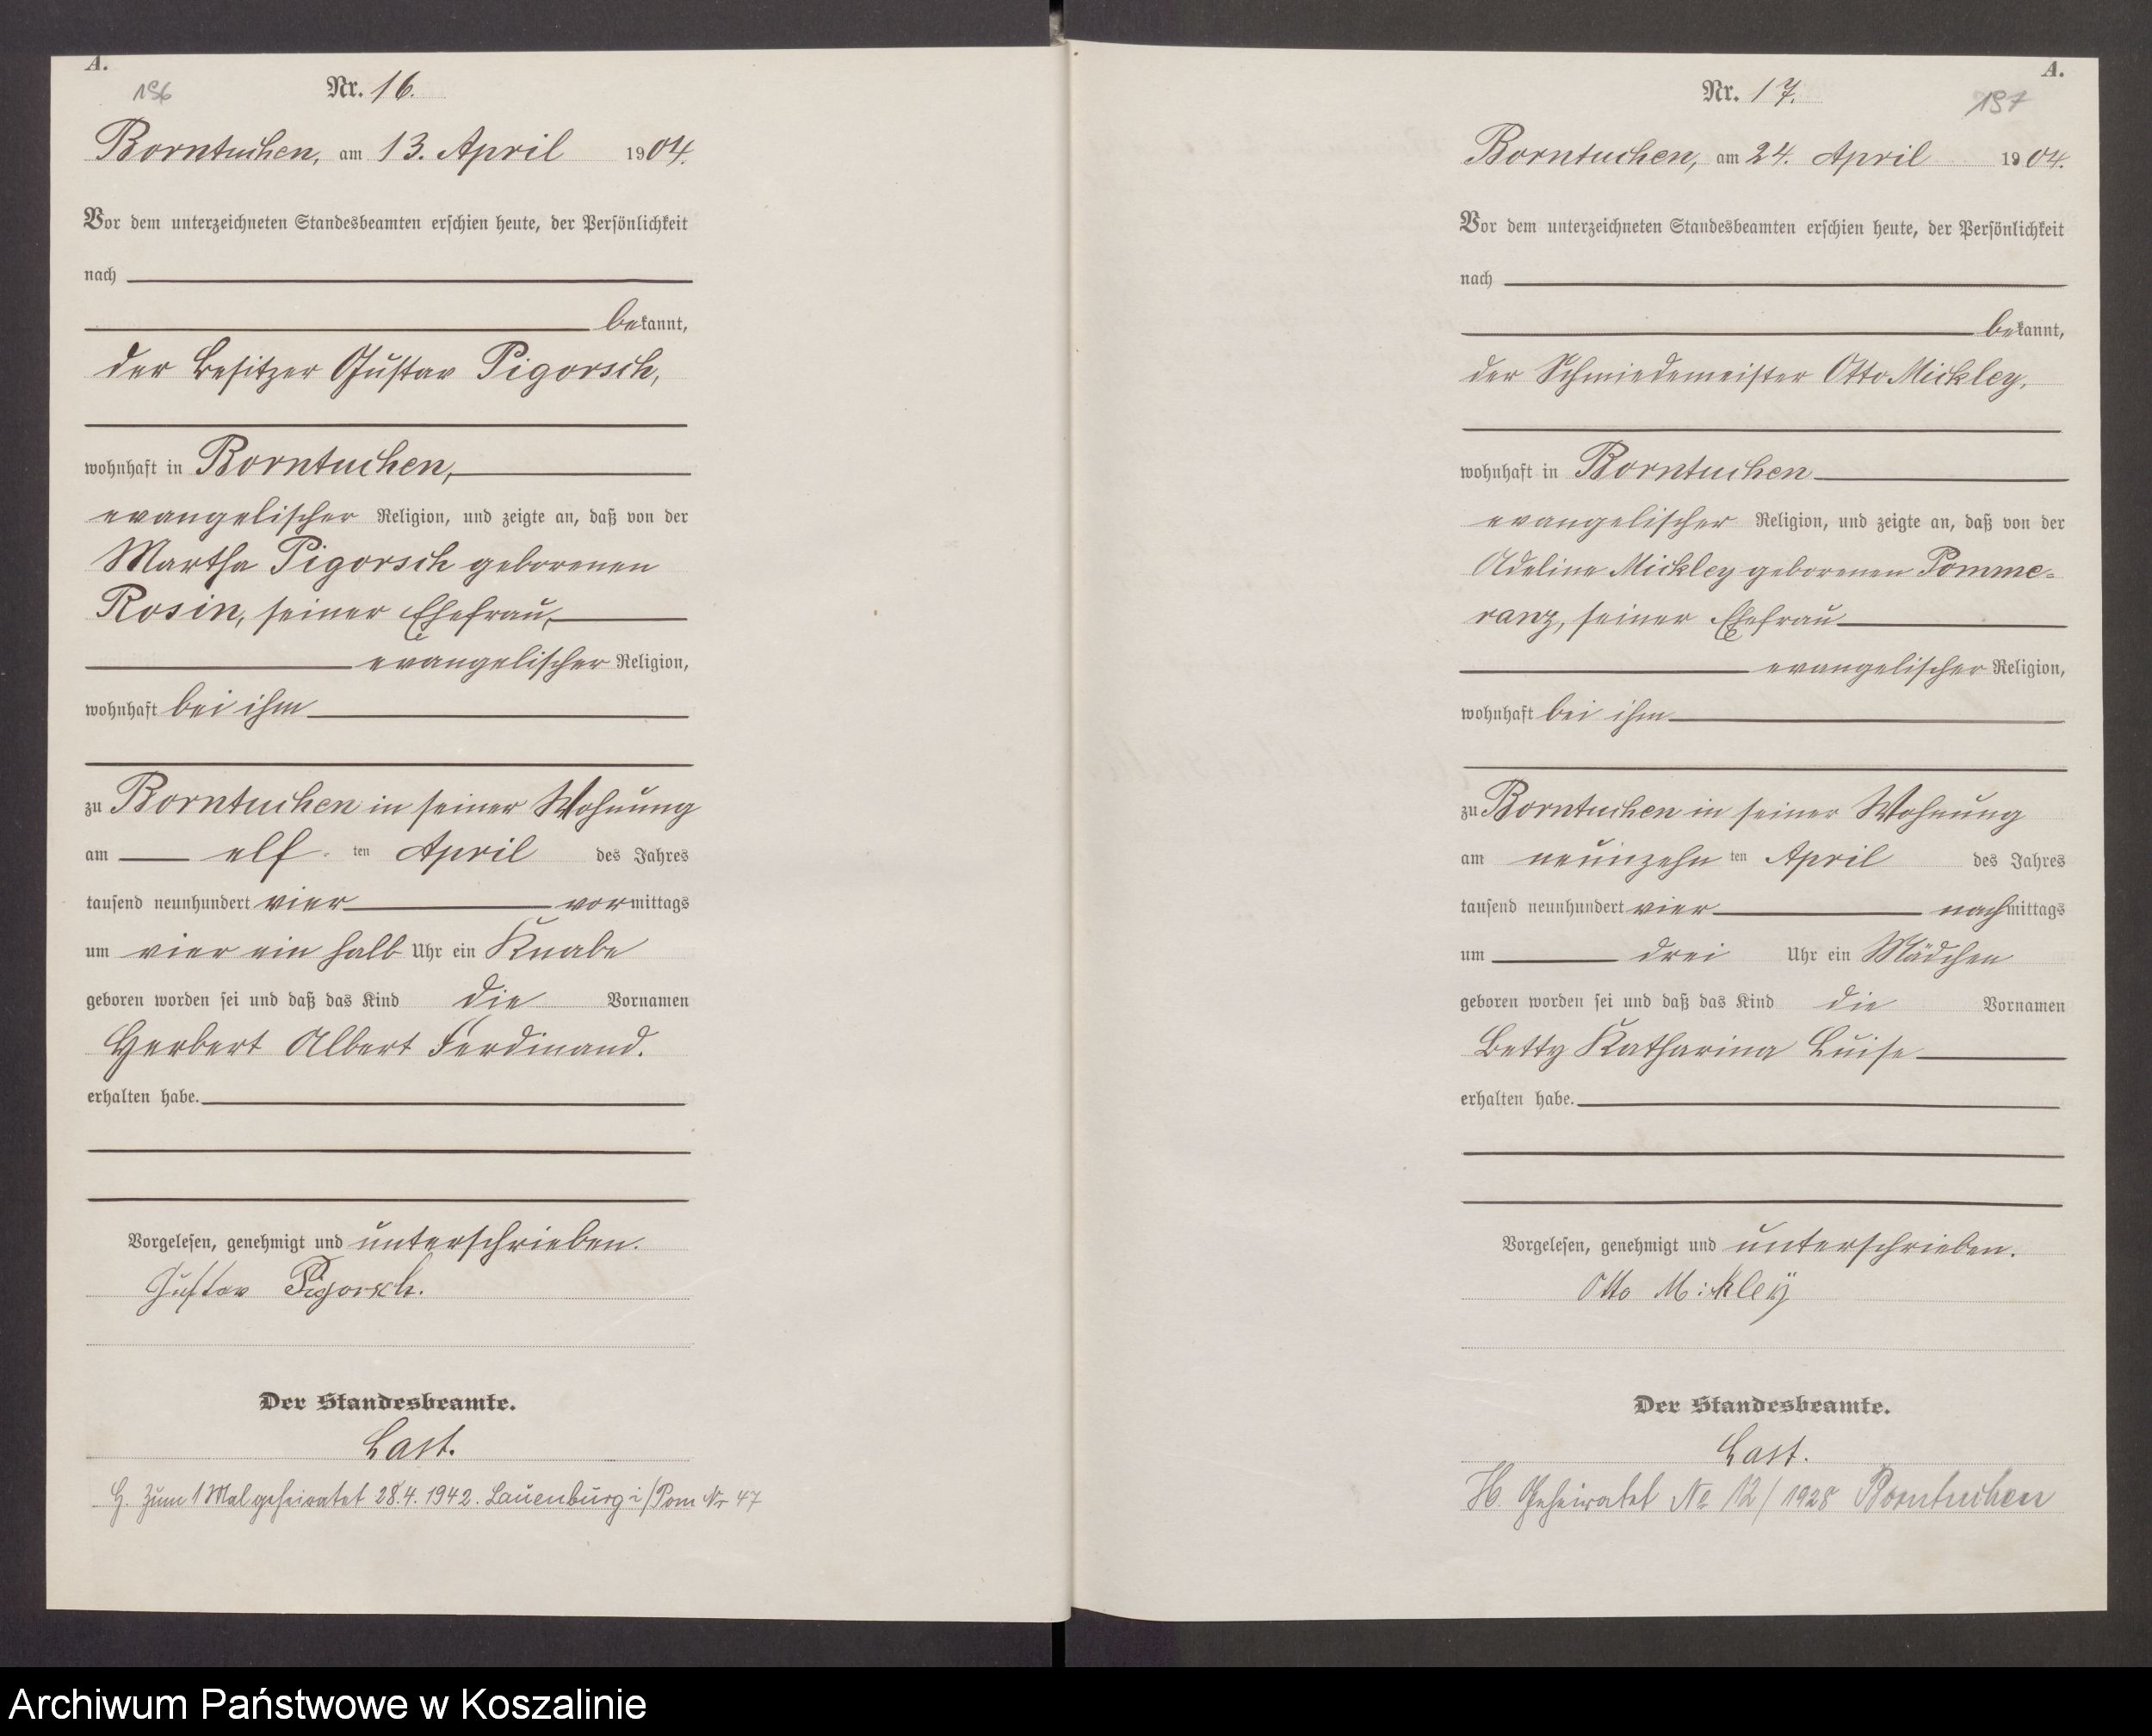 A.
196
Nr. 16.
Borntuchen, am 13. April 1904.
Vor dem unterzeichneten Standesbeamten erschien heute, der Persönlichkeit
nach
bekannt,
der Besitzer Gustav Pigorsch,
wohnhaft in Borntuchen,
evangelischer Religion, und zeigte an, daß von der
Martha Pigorsch geborenen
Rosin, seiner Ehefrau,
evangelischer Religion,
wohnhaft bei ihm
zu Borntuchen in seiner Wohnung
am elf ten April des Jahres
tausend neunhundert vier vormittags
um vier ein halb Uhr ein Knabe
geboren worden sei und daß das Kind die Vornamen
Herbert Albert Ferdinand.
erhalten habe.
Vorgelesen, genehmigt und unterschrieben.
Gustav Pigorsch.
Der Standesbeamte.
Last.
H. Zum 1 Mal geheiratet 28.4.1942. Lauenburg i/Pom Nr 47
A.
197
Nr. 17.
Borntuchen, am 24. April 1904.
Vor dem unterzeichneten Standesbeamten erschien heute, der Persönlichkeit
nach
bekannt,
der Schmiedemeister Otto Mickley,
wohnhaft in Borntuchen
evangelischer Religion, und zeigte an, daß von der
Adeline Mickley geborenen Pomme-
ranz, seiner Ehefrau
evangelischer Religion,
wohnhaft bei ihm
zu Borntuchen in seiner Wohnung
am neunzehn ten April des Jahres
tausend neunhundert vier nachmittags
um drei Uhr ein Mädchen
geboren worden sei und daß das Kind die Vornamen
Betty Katharina Luise
erhalten habe.
Vorgelesen, genehmigt und unterschrieben.
Otto Mickley
Der Standesbeamte.
Last.
H. Geheiratet No 12/1928 Borntuchen
Archiwum Państwowe w Koszalinie